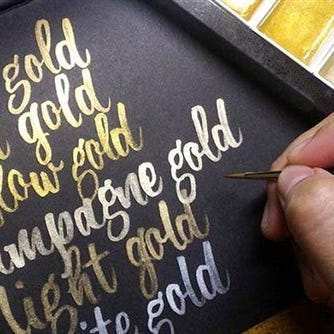 gold
gold
low gold
mpagne gold
light gold
ite gold